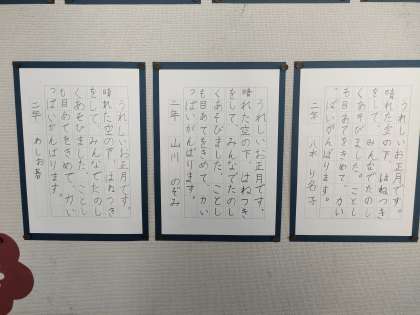 うれしいお正月です。
晴れた空の下、はねつき
をして、みんなでたのし
くあそびました。ことし
も目あてをきめて、力い
っぱいがんばります。
二年 八木
うれしいお正月です。
晴れた空の下、はねつき
をして、みんなでたのし
くあそびました。ことし
も目あてをきめて、力い
っぱいがんばります。
二年 山川 のぞみ
うれしいお正月です。
晴れた空の下、はねつき
をして、みんなでたのし
くあそびました。ことし
も目あてをきめて、力い
っぱいがんばります。
二年